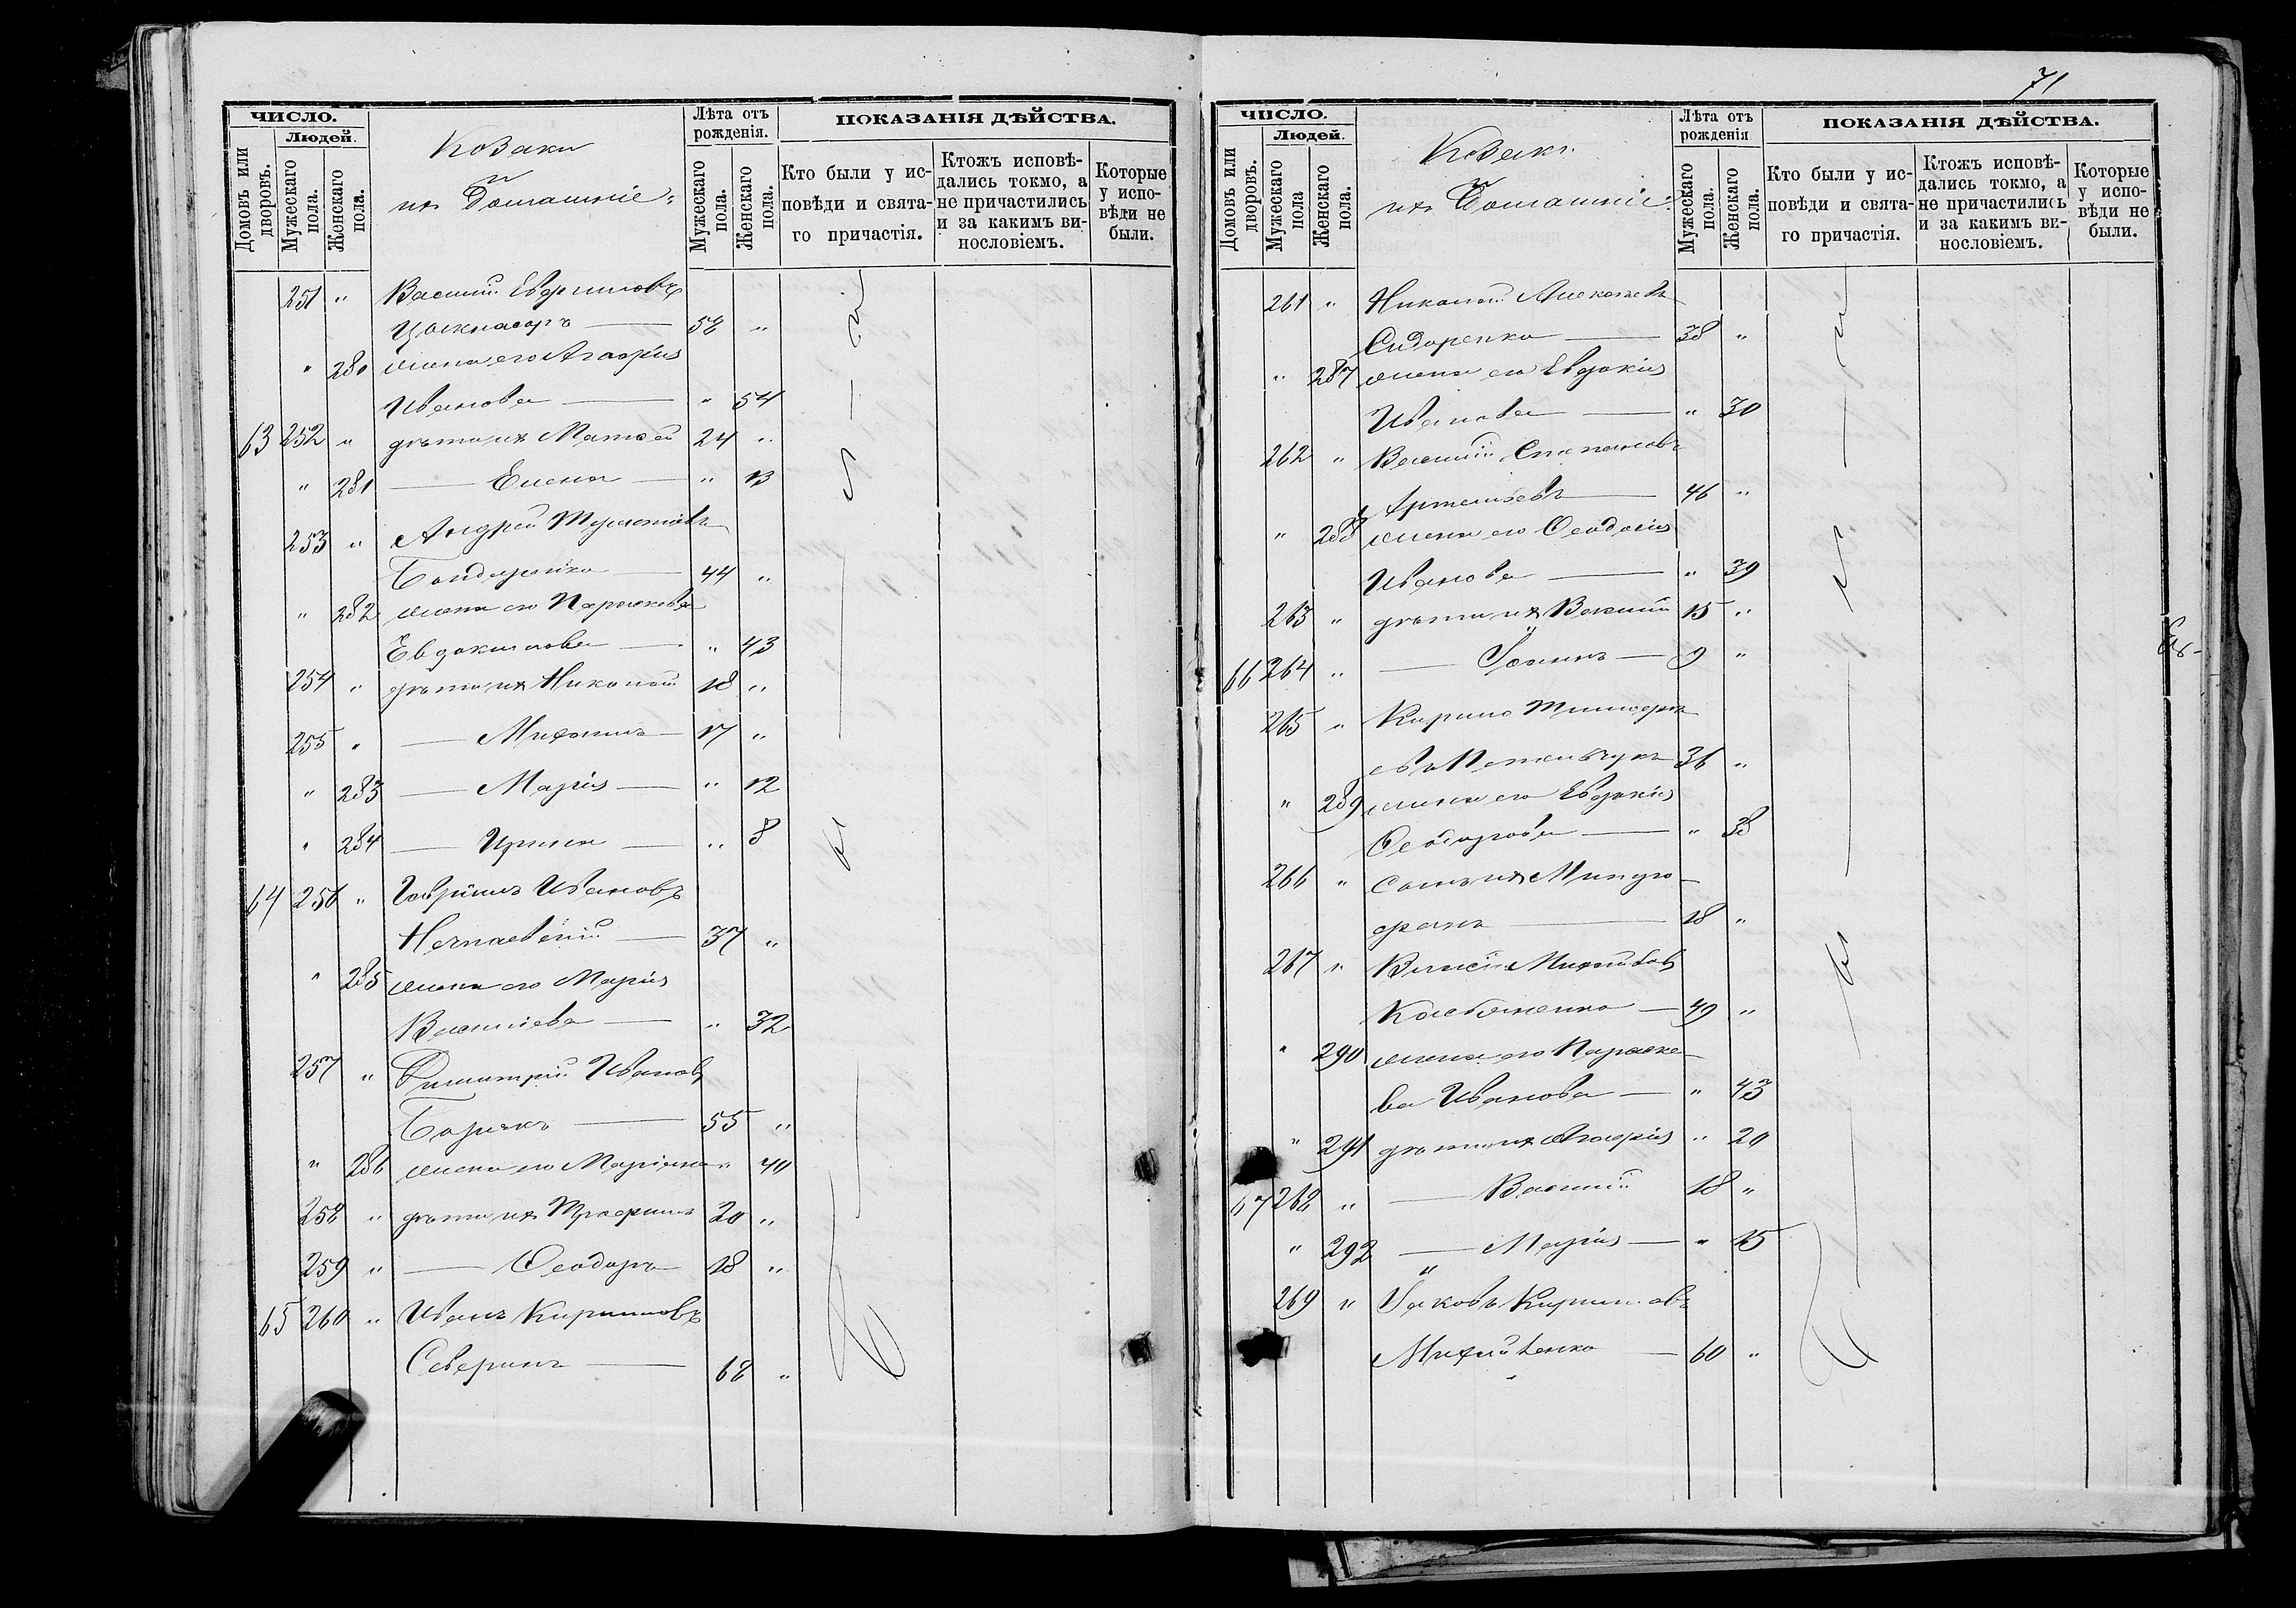 71
ЧИСЛО.
Людей.
Домовъ или дворовъ.
Мужескаго пола.
Женскаго пола.
Козаки
и
ихъ Домашніе
Лѣта отъ рожденія.
Мужескаго пола.
Женскаго пола.
ПОКАЗАНІЯ ДѢЙСТВА.
Кто были у исповѣди и святаго причастія.
Ктожъ исповѣдались токмо, а не причастились и за какимъ винословіемъ.
Которые у исповѣди не были.
251 " Василій
58 "
" 280 жена его Агафія
Иванова " 54
63 252 " дѣти ихъ Матѳей 24 "
" 281 Елена " 13
253 " Андрей
Бондаренко 44 "
" 282 жена его Параскева
Евдокимова " 43
254 " дѣти ихъ Николай 18 "
255 " Михаилъ 17 "
" 283 Марія " 12
" 284 Ирина " 8
64 256 " Гавріилъ Ивановъ
37 "
" 285 жена его Марія
Васильева " 32
257 " Димитрій Ивановъ
55 "
" 286 жена его Маріанна " 40
258 " дѣти ихъ Трофимъ 20 "
259 " Ѳеодоръ 18 "
65 260 " Иванъ Кирилловъ
Северинъ 68 "
ЧИСЛО.
Людей.
Домовъ или дворовъ.
Мужескаго пола
Женскаго пола.
Козаки
и
ихъ Домашніе
Лѣта отъ рожденія
Мужескаго пола.
Женскаго пола.
ПОКАЗАНІЯ ДѢЙСТВА.
Кто были у исповѣди и святаго причастія.
Ктожъ исповѣдались токмо, а не причастились и за какимъ винословіемъ.
Которые у исповѣди не были.
261 " Николай Алексѣевъ
Сидоренко 38 "
" 287 жена его Евдокія
Иванова " 30
262 " Василій Степановъ
Артемьевъ 46 "
" 288 жена его Ѳеодосія
Иванова " 39
263 " дѣти ихъ Василій 15 "
66 264 " Іоаннъ 9 "
265 " Кирилъ
36 "
" 289 жена его Евдокія
Ѳеодорова " 38
266 " сынъ ихъ
18 "
267 " Василій Михайловъ
49 "
" 290 жена его Параске
ва Иванова " 43
" 291 дѣти ихъ Агафія " 20
67 268 " Василій 18 "
" 292 Марія " 15
269 " Іаковъ Кирилловъ
Михайленко 60 "